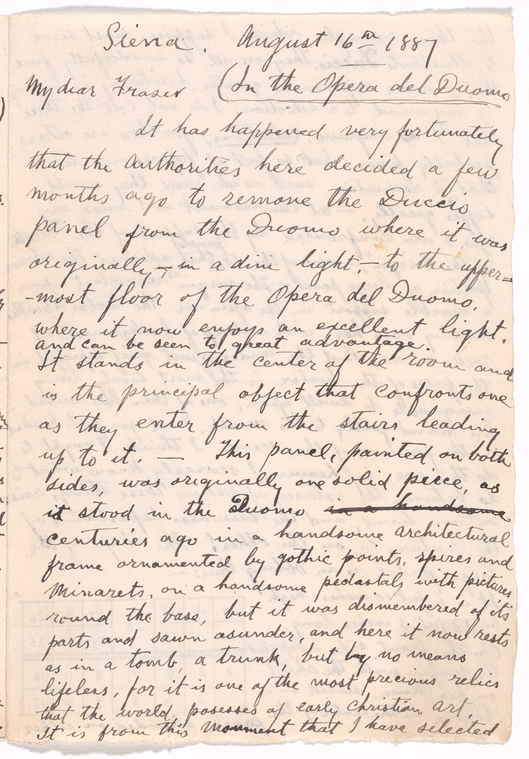 Siena. August 16th 1887
My dear Fraser (In the Opera del Duomo
It has happened very fortunately
that the authorities here decided a few
months ago to remove the Duccio
panel from the Duomo where it was
originally, - in a dim light, - to the upper=
-most floor of the Opera del Duomo,
where it now enjoys an excellent light.
and can be seen to great advantage.
It stands in the center of the room and
is the principal object that confronts one
as they enter from the stairs leading
up to it. — This panel, painted on both
sides, was originally one solid piece, as
it stood in the Duomo is a handsome
centuries ago in a handsome architectural
frame ornamented by gothic points, spires and
Minarets, on a handsome pedastals with pictures
round the base, but it was dismembered of its
parts and sawn asunder, and here it now rests
as in a tomb, a trunk, but by no means
lifeless, for it is one of the most precious relics
that the world posesses of early christian art,
It is from this monument that I have selected